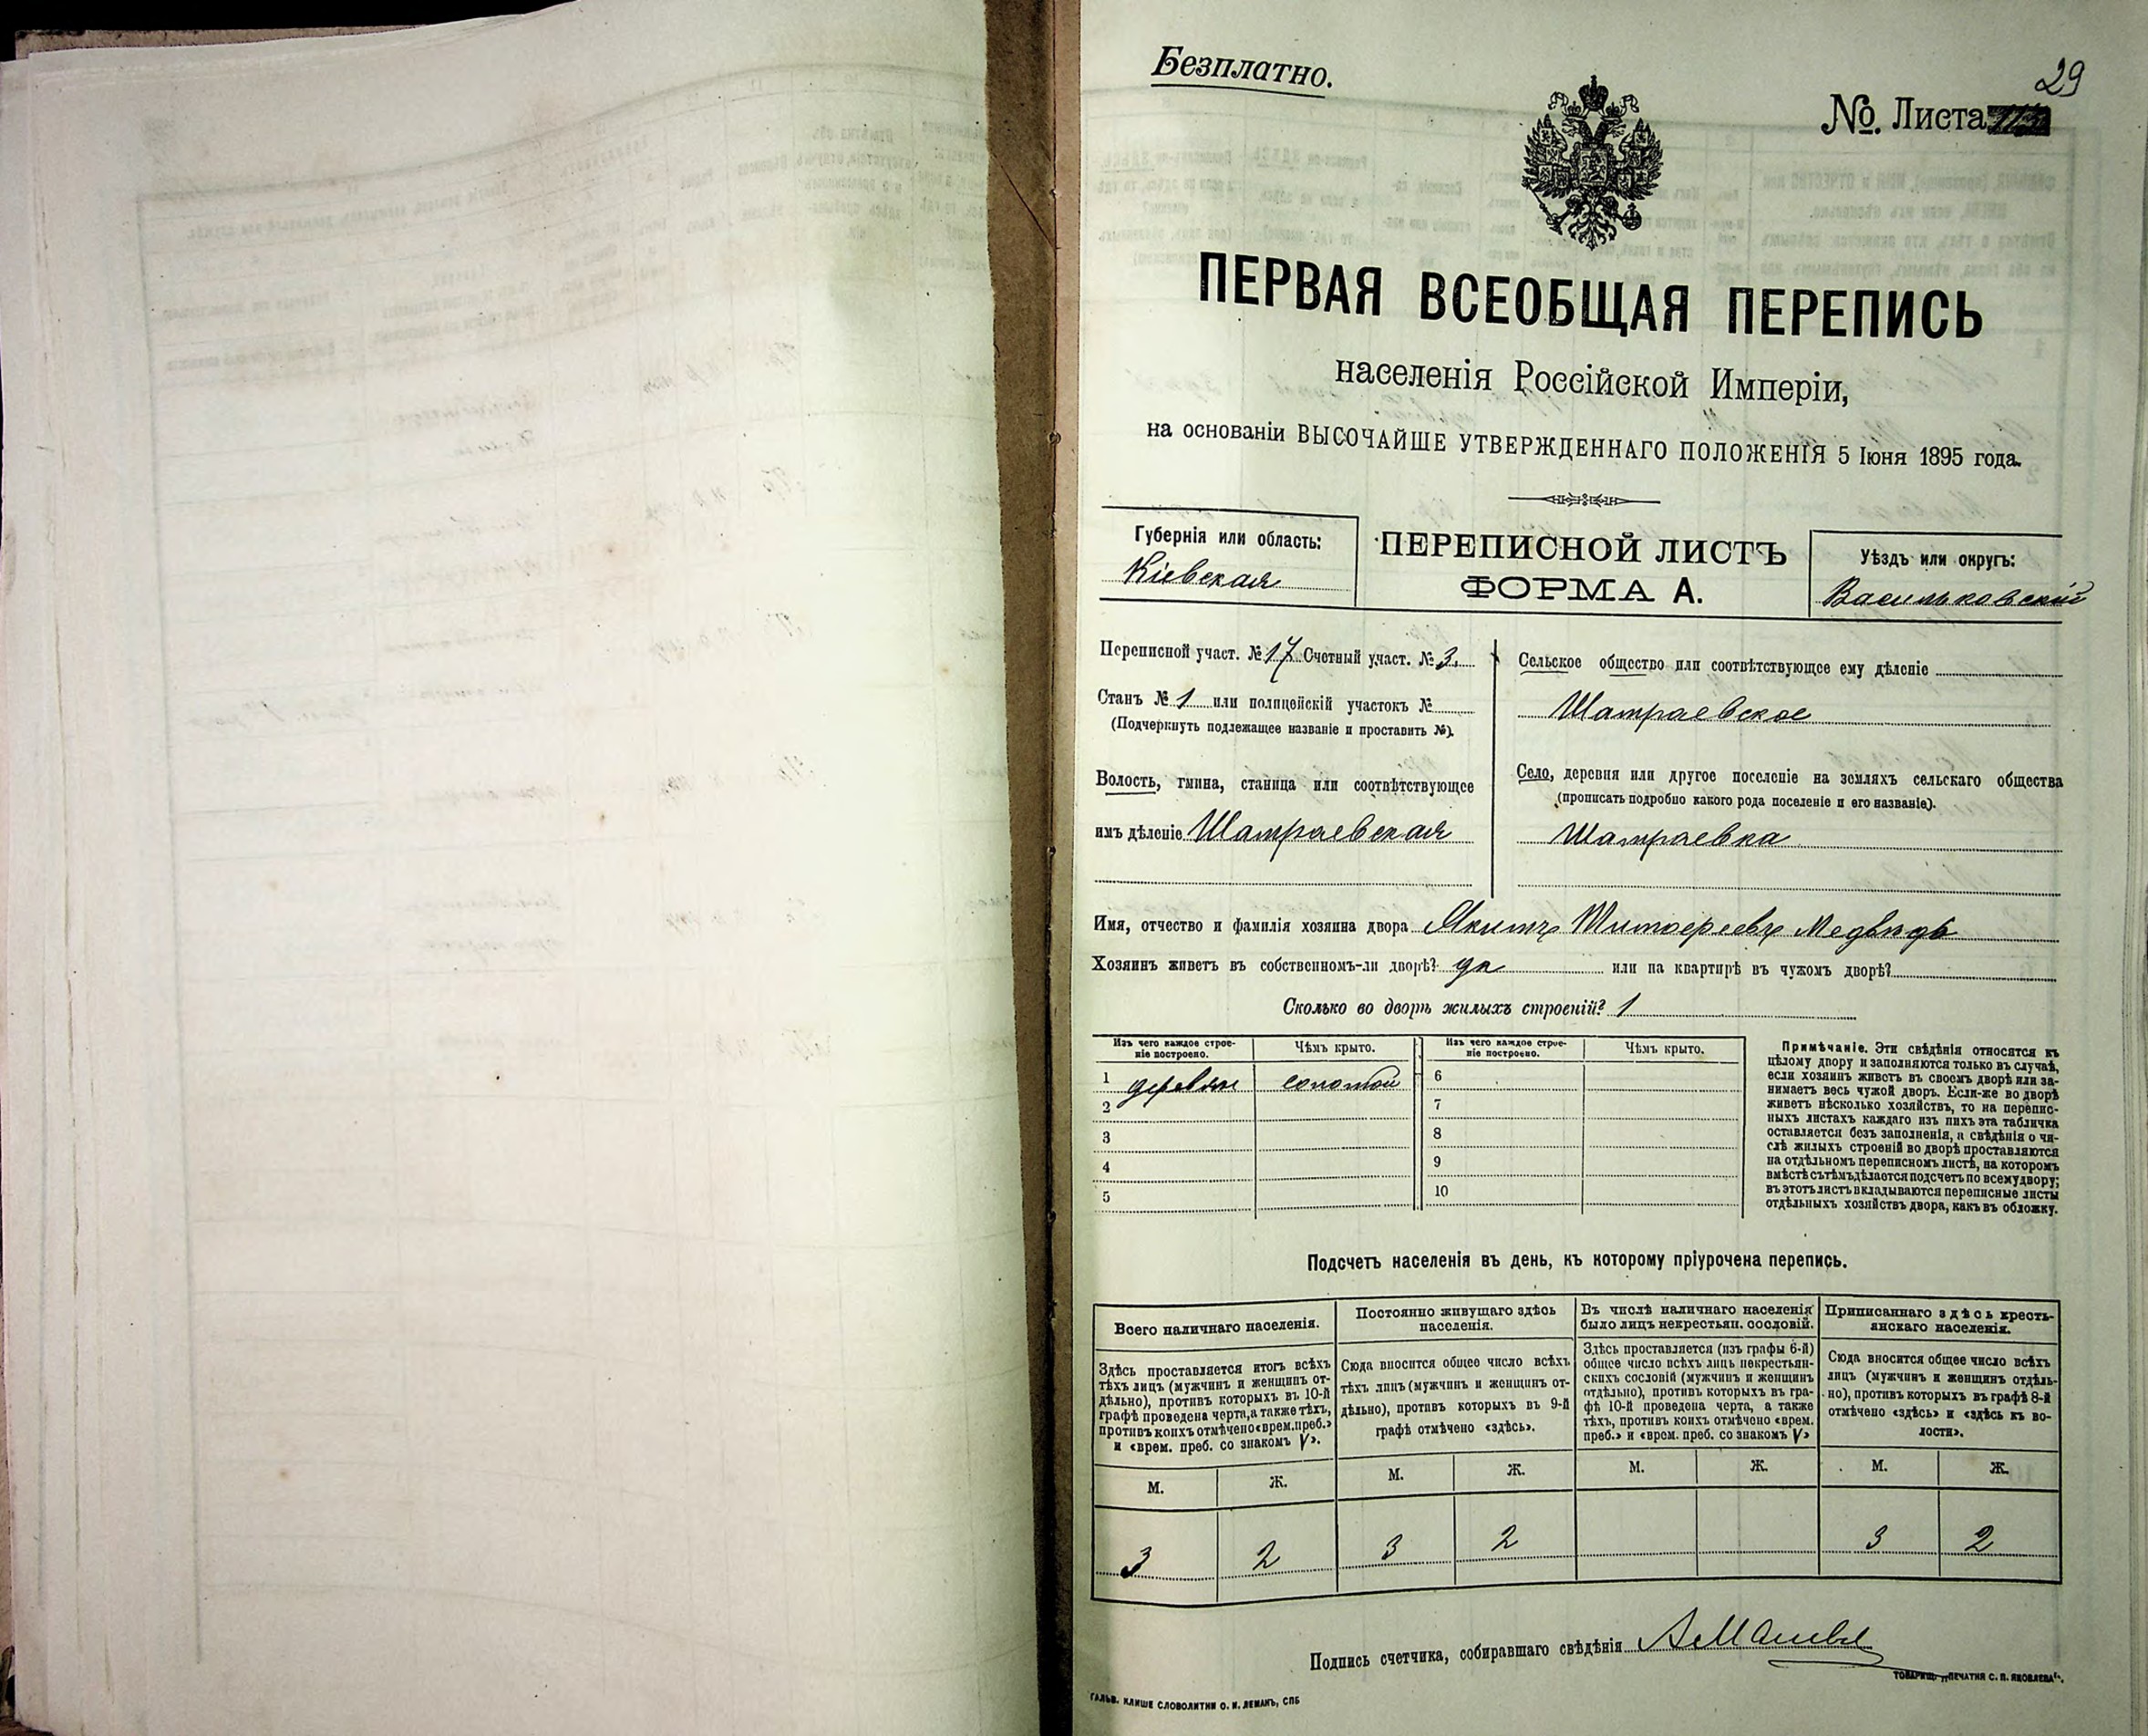 Безплатно.
29
№. Листа
ПЕРВАЯ ВСЕОБЩАЯ ПЕРЕПИСЬ
населенія Россійской Имперіи,
на основаніи ВЫСОЧАЙШЕ УТВЕРЖДЕННАГО ПОЛОЖЕНІЯ 5 Іюня 1895 года.
Губернія или область:
Кіевская
ПЕРЕПИСНОЙ ЛИСТЪ
ФОРМА А.
Уѣздъ или округъ:
Васильковскій
Переписной участ. № 17 Счетный участ. № 3.
Станъ № 1 или полицейскій участокъ №
(Подчеркнуть подлежащее названіе и проставить №).
Волость, гмина, станица или соотвѣтствующее
имъ дѣленіе Шамраевская
Сельское общество или соотвѣтствующее ему дѣленіе
Шамраевское
Село, деревня или другое поселеніе на земляхъ сельскаго общества
(прописать подробно какого рода поселеніе и его названіе).
Шамраевка
Имя, отчество и фамилія хозяина двора Медвѣдь
Хозяинъ живетъ въ собственномъ-ли дворѣ? да или на квартирѣ въ чужомъ дворѣ?
Сколько во дворѣ жилыхъ строеній? 1
Изъ чего каждое строе-
ніе построено.
Чѣмъ крыто.
Изъ чего каждое строе-
ніе построено.
Чѣмъ крыто.
1 соломой
2
3
4
5
6
7
8
9
10
Примѣчаніе. Эти свѣдѣнія относятся къ
цѣлому двору и заполняются только въ случаѣ,
если хозяинъ живетъ въ своемъ дворѣ или за-
нимаетъ весь чужой дворъ. Если-же во дворѣ
живетъ нѣсколько хозяйствъ, то на перепис-
ныхъ листахъ каждаго изъ нихъ эта табличка
оставляется безъ заполненія, а свѣдѣнія о чи-
слѣ жилыхъ строеній во дворѣ проставляются
на отдѣльномъ переписномъ листѣ, на которомъ
вмѣстѣ съ тѣмъ дѣлается подсчетъ по всему двору;
въ этотъ листъ вкладываются переписные листы
отдѣльныхъ хозяйствъ двора, какъ въ обложку.
Подсчетъ населенія въ день, къ которому пріурочена перепись.
Всего наличнаго населенія.
Здѣсь проставляется итогъ всѣхъ
тѣхъ лицъ (мужчинъ и женщинъ от-
дѣльно), противъ которыхъ въ 10-й
графѣ проведена черта, а также тѣхъ,
противъ коихъ отмѣчено «врем. преб.»
и «врем. преб. со знакомъ V».
М. Ж.
3 2
Постоянно живущаго здѣсь
населенія.
Сюда вносится общее число всѣхъ
тѣхъ лицъ (мужчинъ и женщинъ от-
дѣльно), противъ которыхъ въ 9-й
графѣ отмѣчено «здѣсь».
М. Ж.
3 2
Въ числѣ наличнаго населенія
было лицъ некрестьян. сословій.
Здѣсь проставляется (изъ графы 6-й)
общее число всѣхъ лицъ некрестьян-
скихъ сословій (мужчинъ и женщинъ
отдѣльно), противъ которыхъ въ гра-
фѣ 10-й проведена черта, а также
тѣхъ, противъ коихъ отмѣчено «врем.
преб.» и «врем. преб. со знакомъ V»
М. Ж.
Приписаннаго здѣсь кресть-
янскаго населенія.
Сюда вносится общее число всѣхъ
лицъ (мужчинъ и женщинъ отдѣль-
но), противъ которыхъ въ графѣ 8-й
отмѣчено «здѣсь» и «здѣсь къ во-
лости».
М. Ж.
3 2
Подпись счетчика, собиравшаго свѣдѣнія
ТОВАРИЩ. „ПЕЧАТНЯ С. П. ЯКОВЛЕВА".
ГАЛЬВ. КЛИШЕ СЛОВОЛИТНИ О. И. ЛЕМАНЪ, СПБ